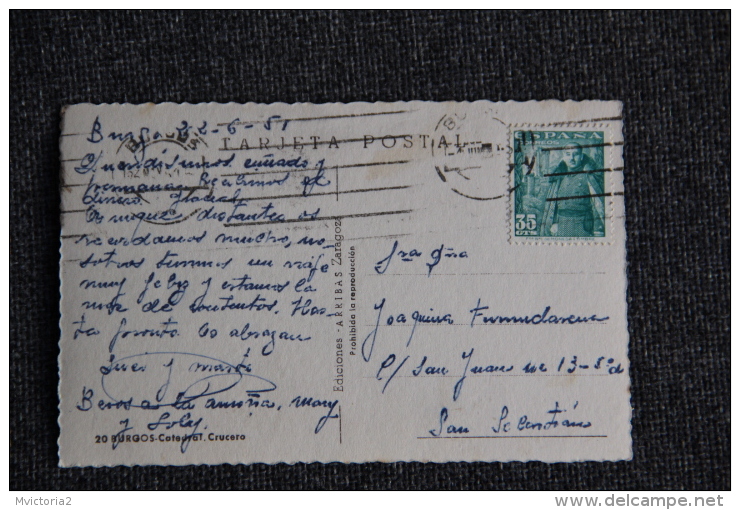 Burgos 22-6-51
TARJETA POSTAL
Queridisimos cuñado y
hermana: Recibimos el
dinero, gracias.
Aunque distantes os
recordamos mucho, no-
sotros tenemos un viaje
muy feliz y estamos la
mar de contentos. Has-
ta pronto. Os abrazan
Luis y
Besos a la amoña, Mary
y Loly.
20 BURGOS-Catedral. Crucero
Ediciones - ARRIBAS Zaragoza
Prohibida la reproducción
ESPAÑA
CORREOS
35
CTS
Sra. Dña.
Joaquina
C/ San Juan nº 13-5º d
San Sebastián
Mvictoria2
delcampe.net